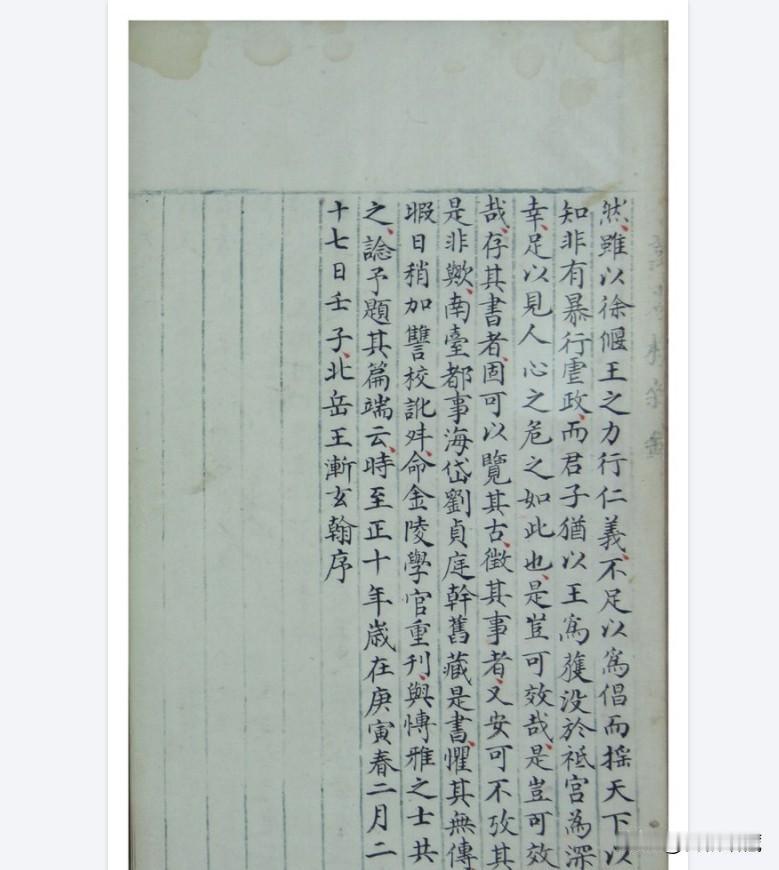 然雖以徐偃王之力行仁義不足以為倡而揺天下以
知非有暴行虐政而君子猶以王為獲没於祗宫為深
幸足以見人心之危之如此也是豈可效哉是豈可效
哉存其書者固可以覽其古徴其事者又安可不攷其
是非歟南臺都事海岱劉貞庭幹舊藏是書懼其無傳
暇日稍加讐校訛舛命金陵學官重刊與博雅之士共
之諗予題其篇端云時至正十年歳在庚寅春二月二
十七日壬子北岳王漸玄翰序